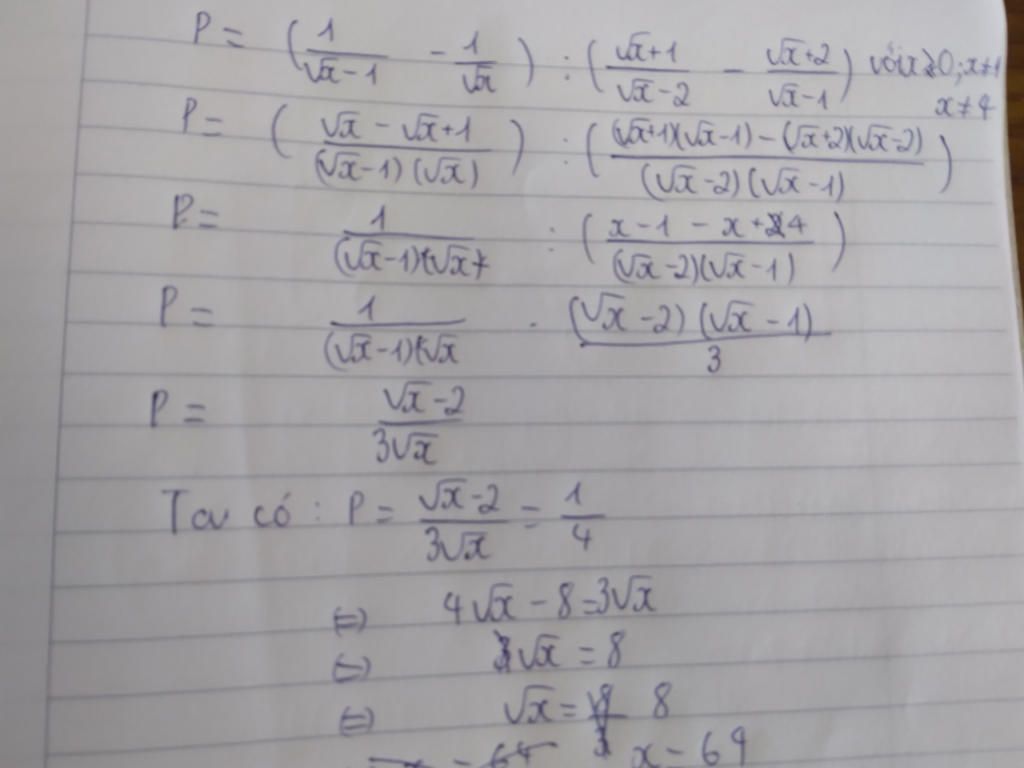 P = (1/(√x-1) - 1/√x) : ((√x+1)/(√x-2) - (√x+2)/(√x-1)) với x>0; x≠1
x≠4
P = ((√x - √x+1)/((√x-1)(√x))) : (((√x+1)(√x-1) - (√x+2)(√x-2))/((√x-2)(√x-1)))
P = 1/((√x-1)(√x) : ((x-1-x+4)/((√x-2)(√x-1)))
P = 1/((√x-1)√x) . ((√x-2)(√x-1))/3
P = (√x-2)/(3√x)
Ta có : P = (√x-2)/(3√x) = 1/4
⇔ 4√x - 8 = 3√x
⇔ √x = 8
⇔ √x = 8
x = 64